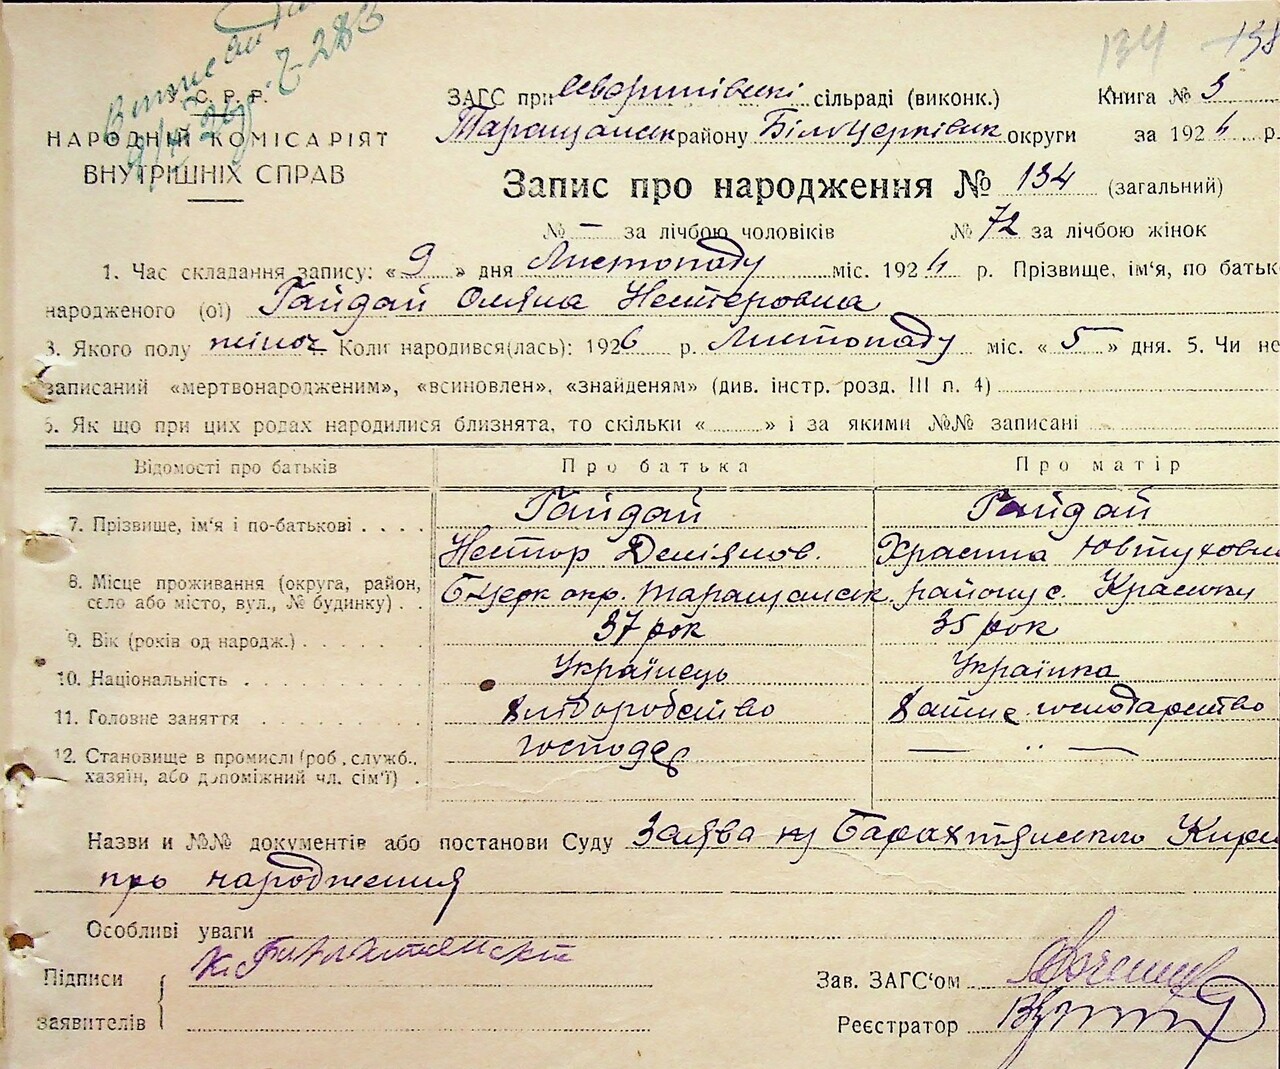 134 138
У. С. Р. Р.
НАРОДНИЙ КОМІСАРІЯТ
ВНУТРІШНІХ СПРАВ
ЗАГС при сільраді (виконк.) Книга № 3
Таращанськ району Білоцерківськ округи за 1926 р.
Запис про народження № 134 (загальний)
№ — за лічбою чоловіків № 72 за лічбою жінок
1. Час складання запису: « 9 » дня Листопаду міс. 1926 р. Прізвище, ім'я, по батьк
народженого (ої) Гайдай Оляна Нестеровна
3. Якого полу жіноч Коли народився(лась): 1926 р. Листопаду міс. « 5 » дня. 5. Чи не
записаний «мертвонародженим», «всиновлен», «знайденям» (див. інстр. розд. III п. 4)
6. Як що при цих родах народилися близнята, то скільки « » і за якими №№ записані
Відомості про батьків Про батька Про матір
7. Прізвище, ім'я і по-батькові Гайдай Гайдай
Нестор Деміянов. Храстина Ювтуховн
8. Місце проживання (округа, район, село або місто, вул., № будинку) Бцерк окр. Таращанськ. району с. Красюки
9. Вік (років од народж.) 37 рок 35 рок
10. Національність Українець Українка
11. Головне заняття хліборобство хатнє господарство
12. Становище в промислі (роб, служб., господар — „ —
хазяїн, або допоміжний чл. сім'ї)
Назви и №№ документів або постанови Суду Заява
про народження
Особливі уваги
Підписи
заявителів
Зав. ЗАГС'ом
Реєстратор